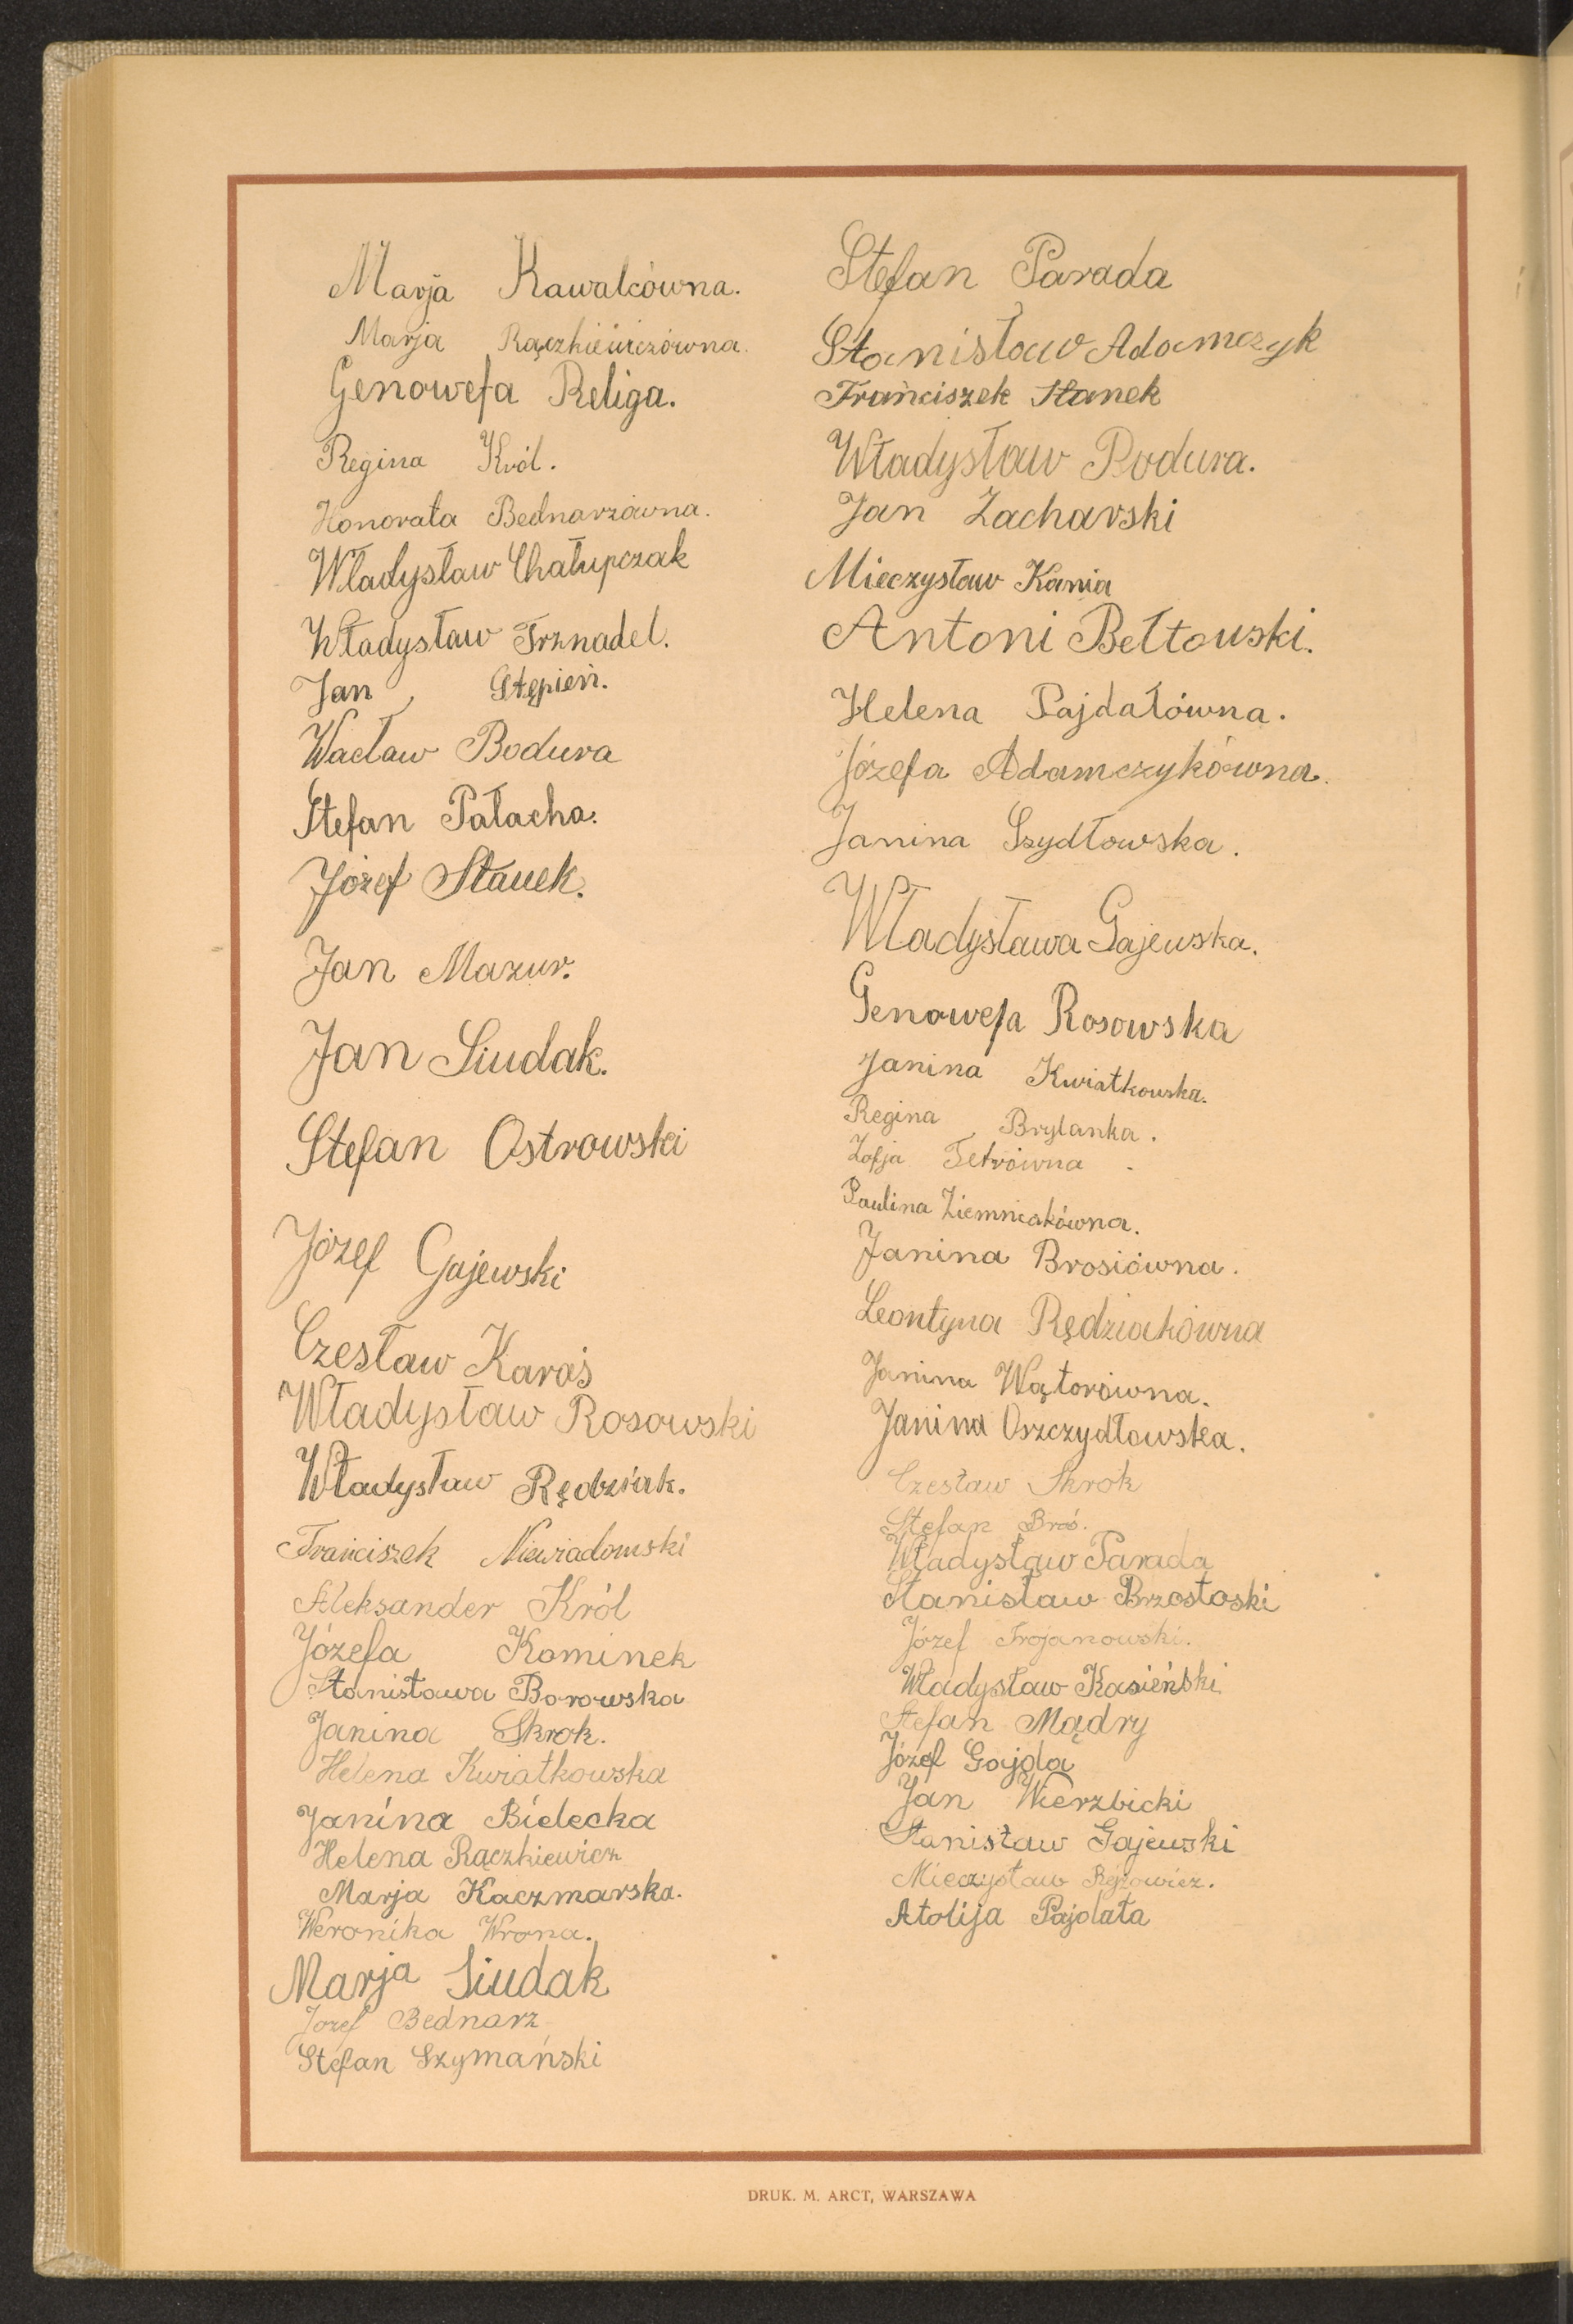 Marja Kawalcówna.
Marja Rączkiewiczówna.
Genowefa Religa.
Regina Król.
Honorata Bednarzówna.
Władysław Chałupczak
Władysław Trznadel.
Jan Stępień.
Wacław Bodura
Stefan Pałacha.
Józef Stanek.
Jan Mazur.
Jan Siudak.
Stefan Ostrowski
Józef Gajewski
Czesław Karaś
Władysław Rosowski
Władysław Rędziak.
Franciszek Niewiadomski
Aleksander Król
Józefa Kominek
Stanisława Borowska
Janina Skrok.
Helena Kwiatkowska
Janina Bielecka
Helena Rączkiewicz
Marja Kaczmarska.
Weronika Wrona.
Marja Siudak
Józef Bednarz
Stefan Szymański
Stefan Parada
Stanisław Adamczyk
Franciszek Stanek
Władysław Bodura.
Jan Zacharski
Mieczysław Kania
Antoni Bełtowski.
Helena Pajdałówna.
Józefa Adamczykówna.
Janina Szydłowska.
Władysława Gajewska.
Genowefa Rosowska
Janina Kwiatkowska.
Regina Brylanka.
Zofja Tetrówna.
Paulina Ziemniakówna.
Janina Brosiówna.
Leontyna Rędziakówna
Janina Wątorówna.
Janina Oszczydłowska.
Czesław Skrok
Stefan Broś.
Władysław Parada
Stanisław Brzostoski
Józef Trojanowski.
Władysław Kasieński
Stefan Mądry
Józef Gajda
Jan Wierzbicki
Stanisław Gajewski
Mieczysław
Atolija Pajdała
DRUK. M. ARCT, WARSZAWA